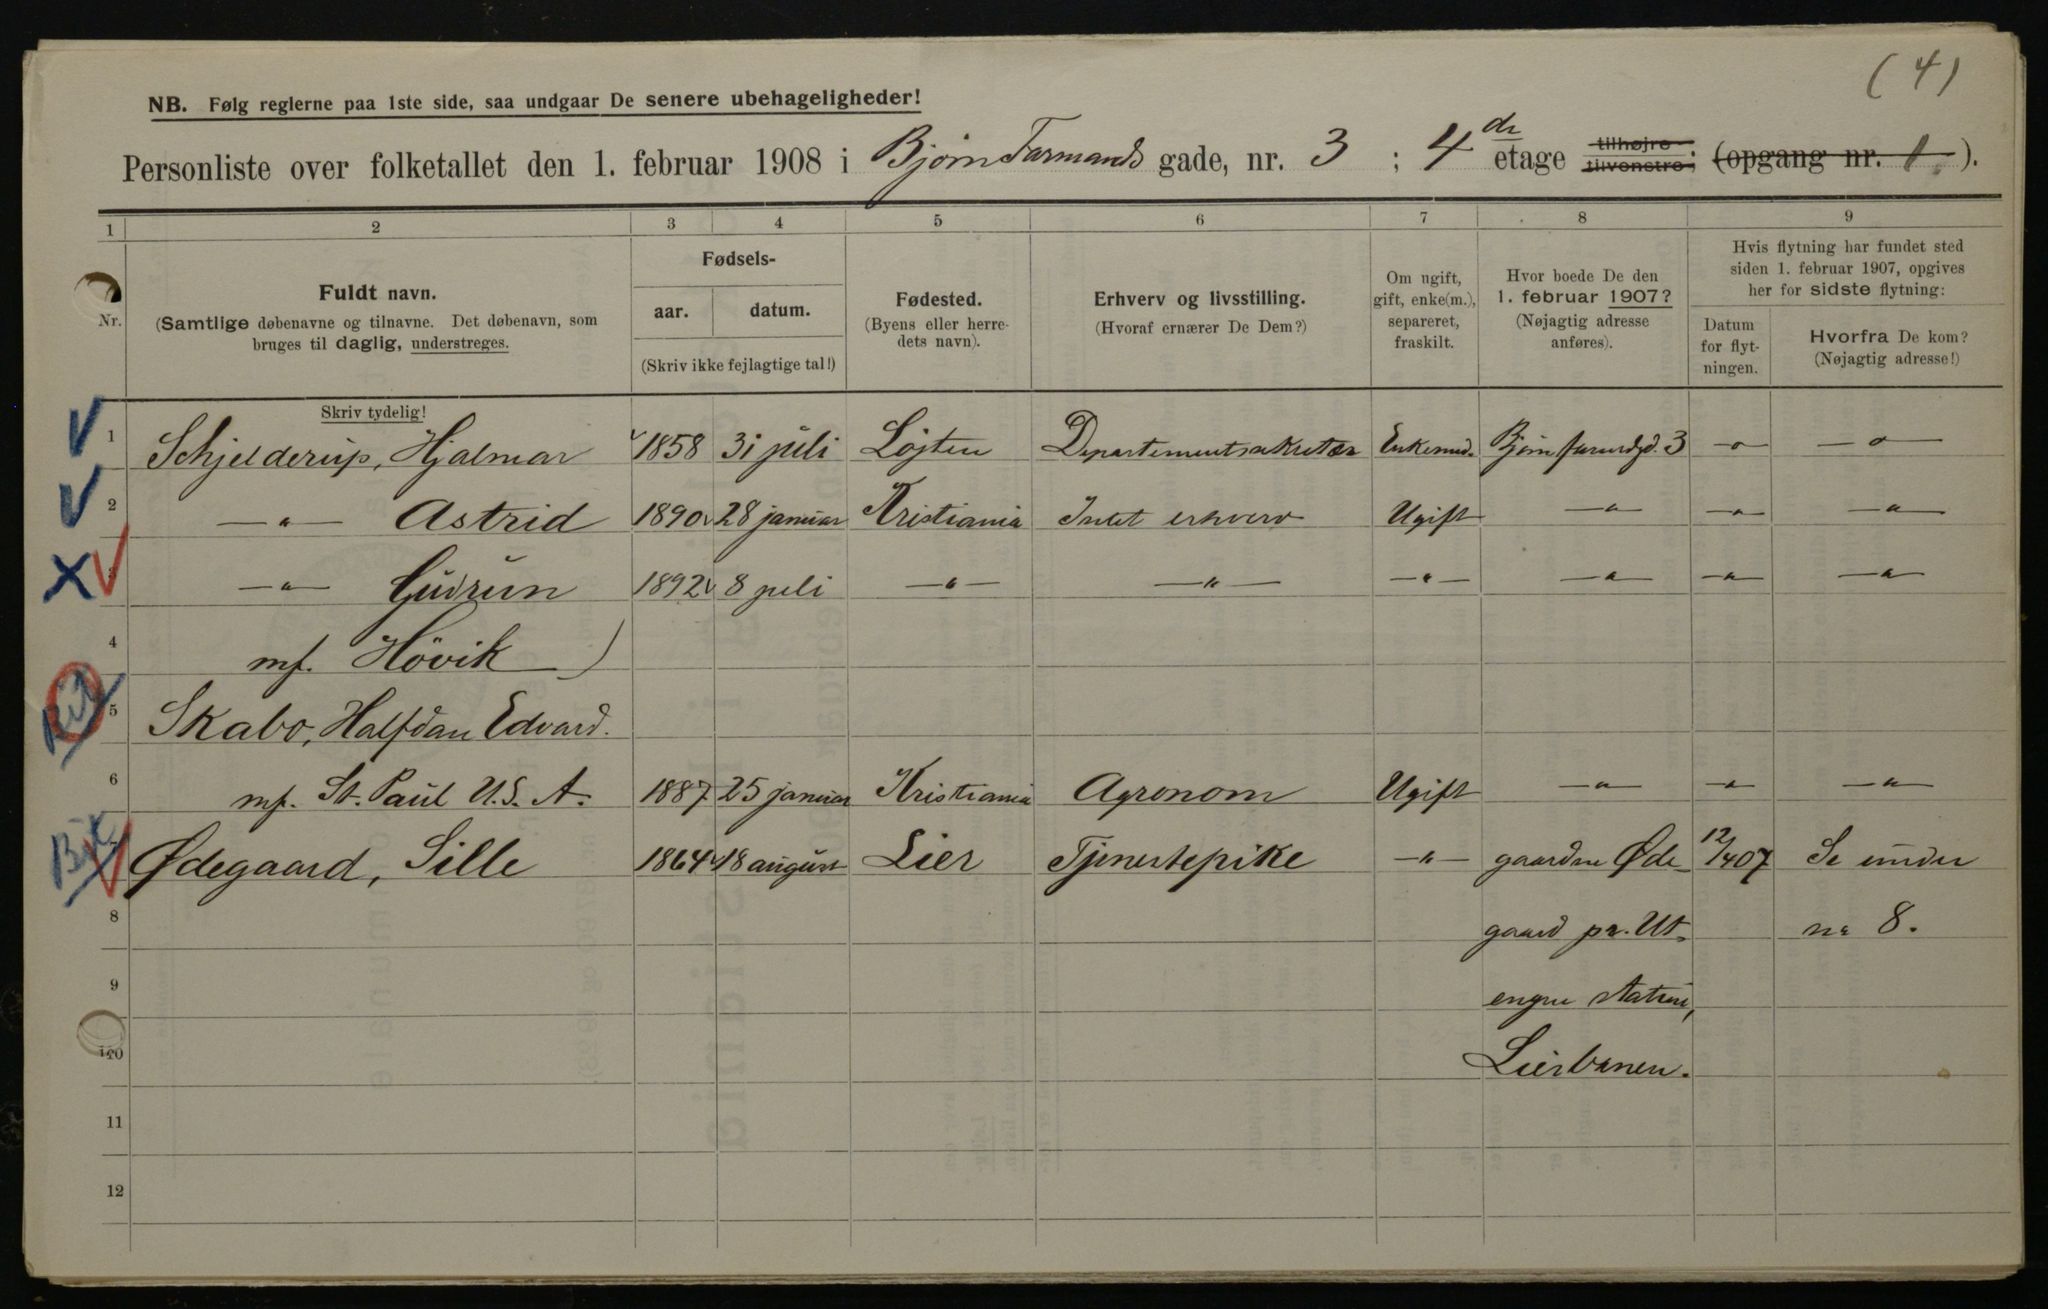 (4)
NB. Følg reglerne paa 1ste side, saa undgaar De senere ubehageligheder!
Personliste over folketallet den 1. februar 1908 i Bjørn Farmands gade, nr. 3 ; 4de etage tilhøjre tilvenstre; (opgang nr. 1.).
1 2 3 4 5 6 7 8 9
Nr.
Fuldt navn.
(Samtlige døbenavne og tilnavne. Det døbenavn, som
bruges til daglig, understreges.
Skriv tydelig!
Fødsels-
aar. datum.
(Skriv ikke fejlagtige tal!)
Fødested.
(Byens eller herre-
dets navn).
Erhverv og livsstilling.
(Hvoraf ernærer De Dem?)
Om ugift,
gift, enke(m.),
separeret,
fraskilt.
Hvor boede De den
1. februar 1907?
(Nøjagtig adresse
anføres).
Hvis flytning har fundet sted
siden 1. februar 1907, opgives
her for sidste flytning:
Datum
for flyt-
ningen.
Hvorfra De kom?
(Nøjagtig adresse!)
1 Schjelderup, Hjalmar 1858 31 juli Løjten Departementssekretær Enkemd. Bjørn farmdgd. 3 -"- -"-
2 -"- Astrid 1890 28 januar Kristiania Intet erhverv Ugift -"- -"- -"-
3 -"- Gudrun 1892 8 juli -"- -"- -"- -"- -"- -"-
4 mf. Hövik )
5 Skabo, Halfdan Edvard.
6 mf. St. Paul U.S.A. 1887 25 januar Kristiania Agronom Ugift -"- -"- -"-
7 Ødegaard, Sille 1864 18 august Lier Tjenestepike -"- gaarden Øde- 12/4 07 Se under
8 gaard pr. Ut- nr 8.
9 engen station,
10 Lierbanen.
11
12